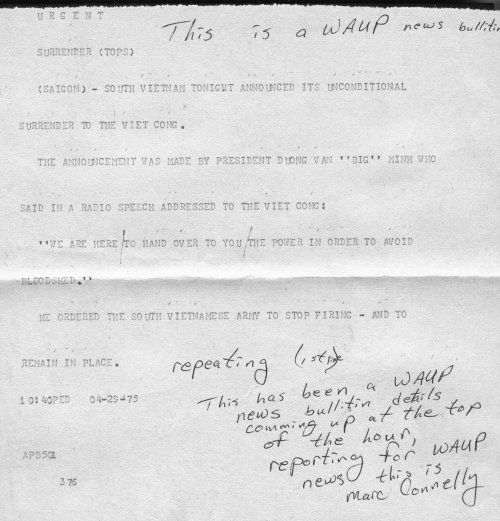 URGENT
This is a WAUP news bullitin
SURRENDER (TOPS)
(SAIGON) - SOUTH VIETNAM TONIGHT ANNOUNCED ITS UNCONDITIONAL
SURRENDER TO THE VIET CONG.
THE ANNOUNCEMENT WAS MADE BY PRESIDENT DUONG VAN ''BIG'' MINH WHO
SAID IN A RADIO SPEECH ADDRESSED TO THE VIET CONG:
''WE ARE HERE/TO HAND OVER TO YOU/THE POWER IN ORDER TO AVOID
BLOODSHED.''
HE ORDERED THE SOUTH VIETNAMESE ARMY TO STOP FIRING - AND TO
REMAIN IN PLACE.
repeating (1st line
10:40PED 04-29-75
This has been a WAUP
news bullitin details
comming up at the top
of the hour,
reporting for WAUP
news this is
Marc Connelly
APB501
375